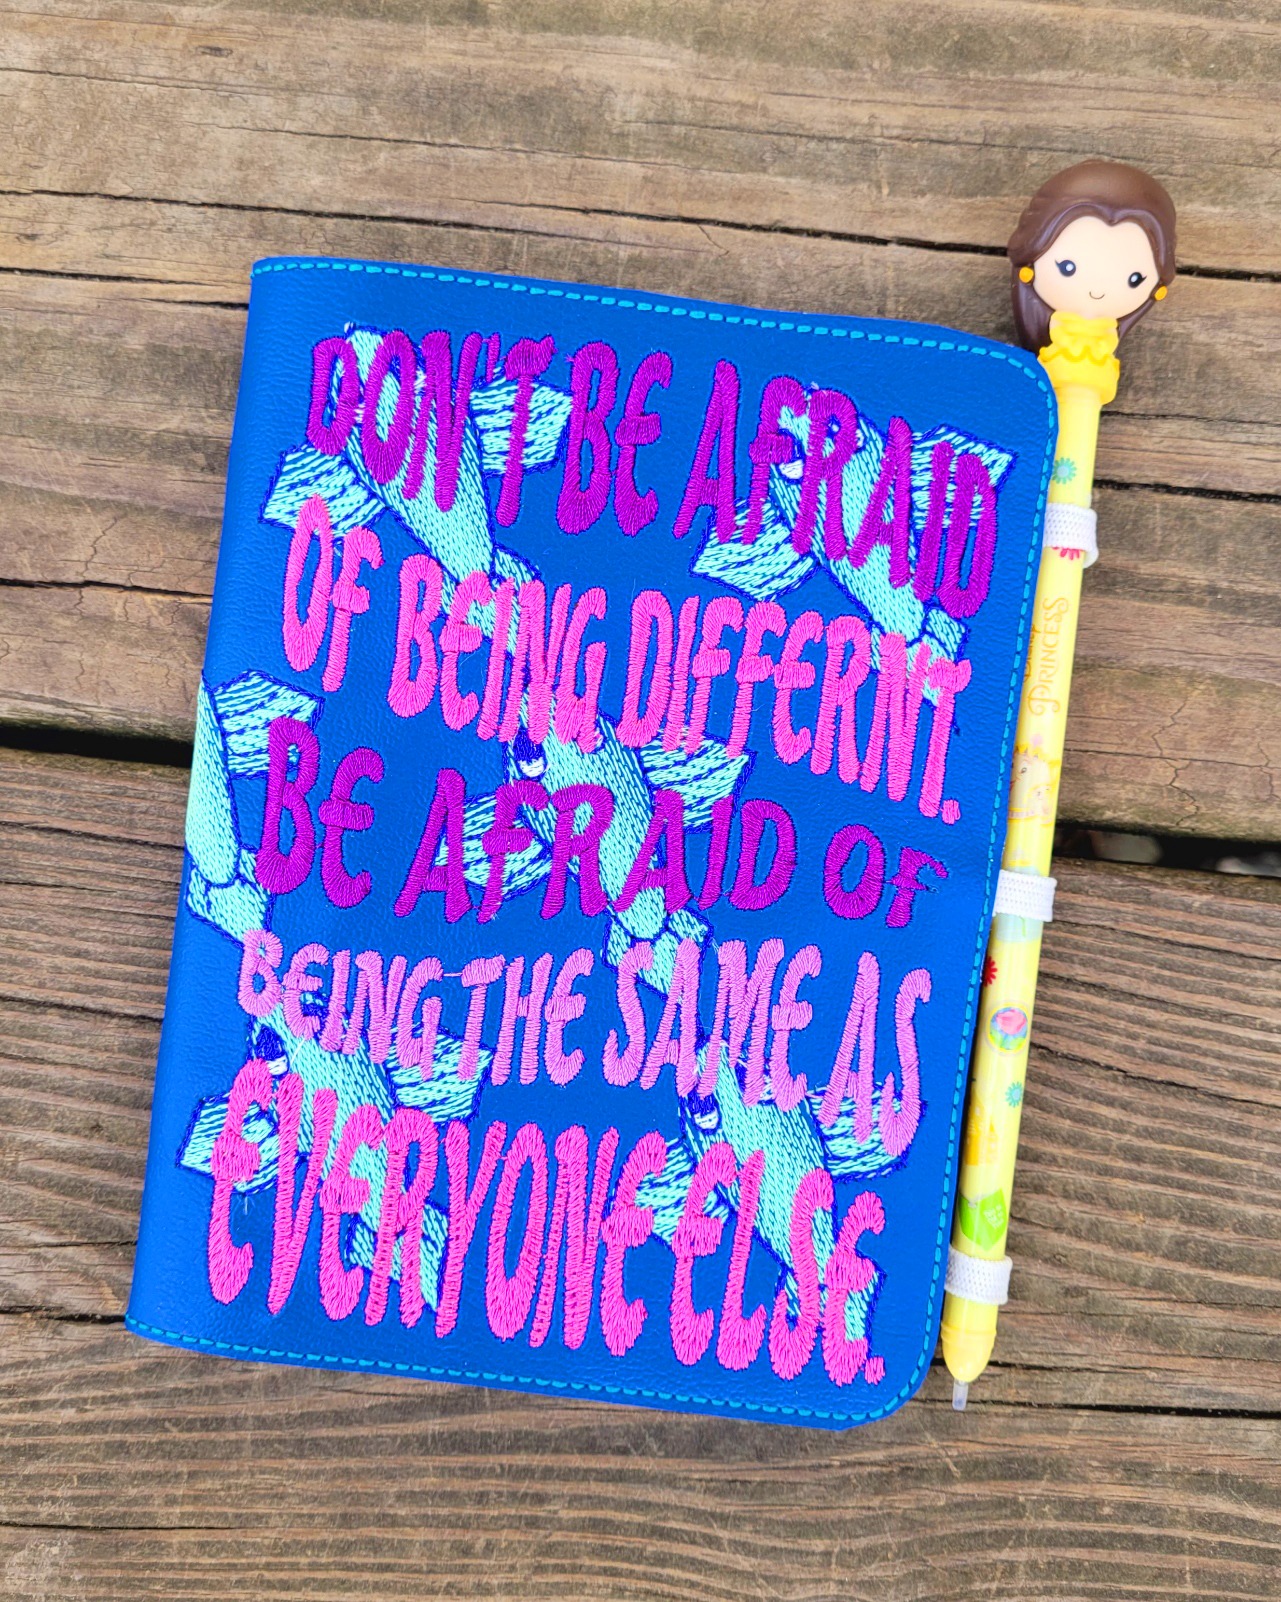 DON'T BE AFRAID
OF BEING DIFFERNT.
BE AFRAID OF
BEING THE SAME AS
EVERYONE ELSE.
PRINCESS